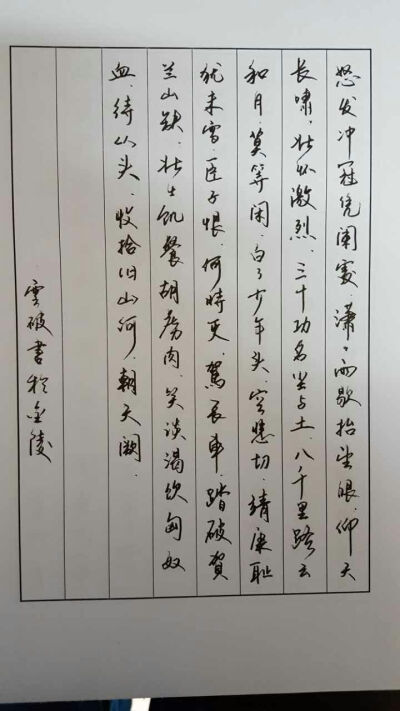 怒发冲冠凭阑處.潇々雨歇抬望眼.仰天
长啸.壮怀激烈.三十功名尘与土.八千里路云
和月.莫等闲.白了少年头.空悲切.靖康耻
犹未雪.臣子恨.何時更.駕長車.踏破賀
兰山缺.壮士饥餐胡虏肉.笑谈渴饮匈奴
血.待从头.收拾旧山河.朝天阙.
雲破書於金陵